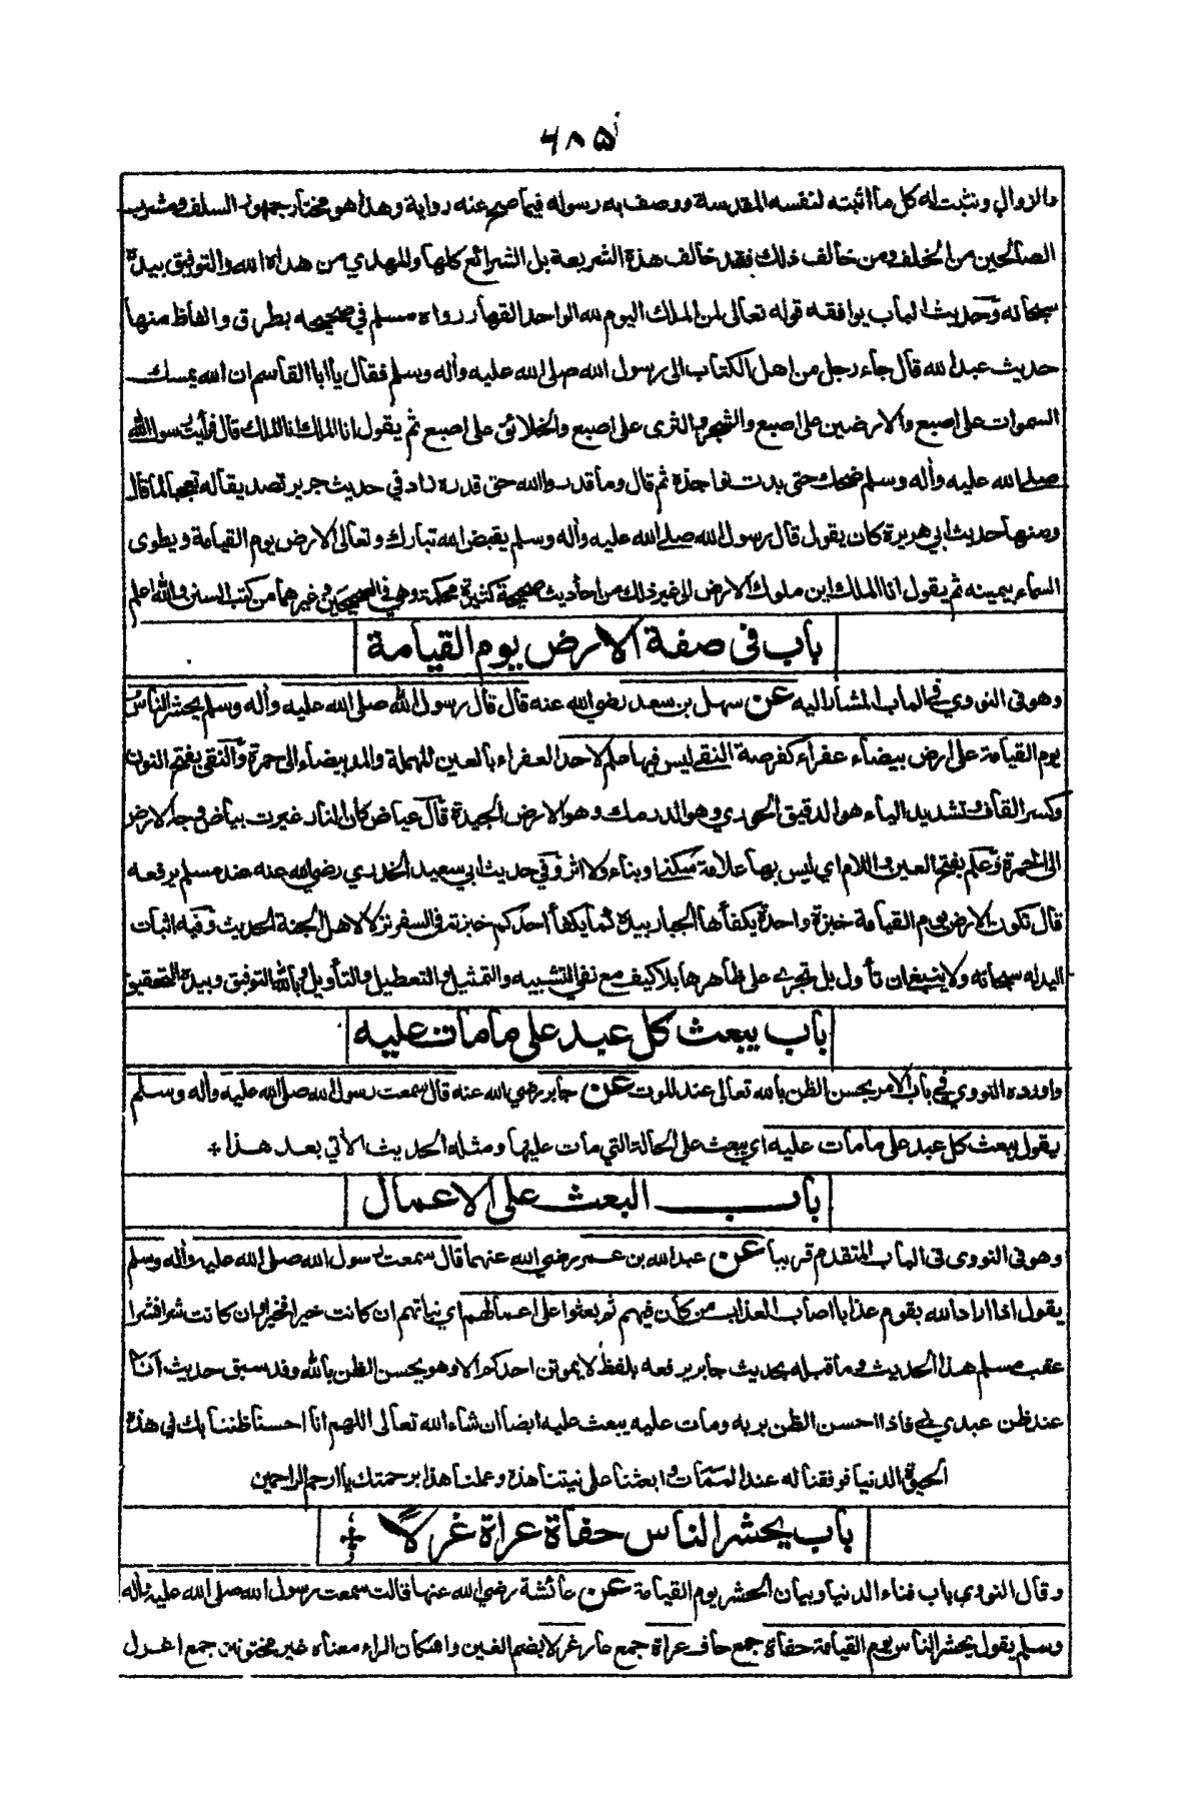 ٦٨٥
والزوال ونثبت له كل ما اثبته لنفسه المقدسة ووصف به رسوله فيما صح عنه رواية وهذا هو مختار جمهور السلف ومشرب
الصالحين من الخلف ومن خالف ذلك فقد خالف هذه الشريعة بل الشرائع كلها والمهدي من هداه الله والتوفيق بيده
سبحانه وحديث الباب يوافقه قوله تعالى لمن الملك اليوم لله الواحد القهار رواه مسلم في صحيحه بطرق والفاظ منها
حديث عبد الله قال جاء رجل من اهل الكتاب الى رسول الله صلى الله عليه وأله وسلم فقال يا ابا القاسم ان الله يمسك
السموات على اصبع والارضين على اصبع والشجر والثرى على اصبع والخلائق على اصبع ثم يقول انا الملك انا الملك قال فرأيت رسول الله
صلى الله عليه وأله وسلم ضحك حتى بدت نواجذه ثم قال وما قدروا الله حق قدره زاد في حديث جرير تصديقا له تعجبا لما قال
ومنها حديث ابي هريرة كان يقول قال رسول الله صلى الله عليه وأله وسلم يقبض الله تبارك وتعالى الارض يوم القيامة ويطوى
السماء بيمينه ثم يقول انا الملك اين ملوك الارض الى غير ذلك من احاديث صحيحة كثيرة محكمة وهي في الصحيحين وغيرهما من كتب السنن والله اعلم
باب في صفة الارض يوم القيامة
وهو في النووي في الباب المشار اليه عن سهل بن سعد رضي الله عنه قال قال رسول الله صلى الله عليه وأله وسلم يحشر الناس
يوم القيامة على ارض بيضاء عفراء كقرصة النقي ليس فيها علم لاحد العفراء بالعين المهملة والمد بيضاء الى حمرة والنقي بفتح النون
وكسر القاف وتشديد الياء هو الدقيق الحوري وهو الدرمك وهو الارض الجيدة قال عياض كان النار غيرت بياض وجه الارض
الى الحمرة وعلم بفتح العين واللام اي ليس بها علامة سكنى او بناء ولا اثر وفي حديث ابي سعيد الخدري رضي الله عنه عند مسلم يرفعه
قال تكون الارض يوم القيامة خبزة واحدة يكفأها الجبار بيده كما يكفأ احدكم خبزته في السفر نزلا لاهل الجنة الحديث وفيه اثبات
اليد له سبحانه ولا ينبغي ان تأول بل تجرى على ظاهرها بلا كيف مع نفي التشبيه والتمثيل والتعطيل والتأويل وبالله التوفيق وبيده التحقيق
باب يبعث كل عبد على ما مات عليه
واورده النووي في باب الامر بحسن الظن بالله تعالى عند الموت عن جابر رضي الله عنه قال سمعت رسول الله صلى الله عليه وأله وسلم
يقول يبعث كل عبد على ما مات عليه اي يبعث على الحالة التي مات عليها ومثله الحديث الأتي بعد هذا +
باب البعث على الاعمال
وهو في النووى فى الباب المتقدم قريبا عن عبد الله بن عمر رضي الله عنهما قال سمعت رسول الله صلى الله عليه وأله وسلم
يقول اذا اراد الله بقوم عذابا اصاب العذاب من كان فيهم ثم بعثوا على اعمالهم اي نياتهم ان كانت خيرا فخيرا وان كانت شرا فشرا
عقب مسلم هذا الحديث وما قبله بحديث جابر يرفعه بلفظ لا يموتن احدكم الا وهو يحسن الظن بالله وقد سبق حديث انا
عند ظن عبدي بي فاذا احسن الظن بربه ومات عليه يبعث عليه ايضا ان شاء الله تعالى اللهم انا احسنا ظننا بك في هذه
الحيوة الدنيا فوفقنا له عند الممات وابعثنا على نيتنا هذه وعملنا هذا برحمتك يا ارحم الراحمين
باب يحشر الناس حفاة عراة غرلا
وقال النووي باب فناء الدنيا وبيان الحشر يوم القيامة عن عائشة رضي الله عنها قالت سمعت رسول الله صلى الله عليه وأله
وسلم يقول يحشر الناس يوم القيامة حفاة جمع حاف عراة جمع عار غرلا بضم الغين واسكان الراء معناه غير مختونين جمع اغرل